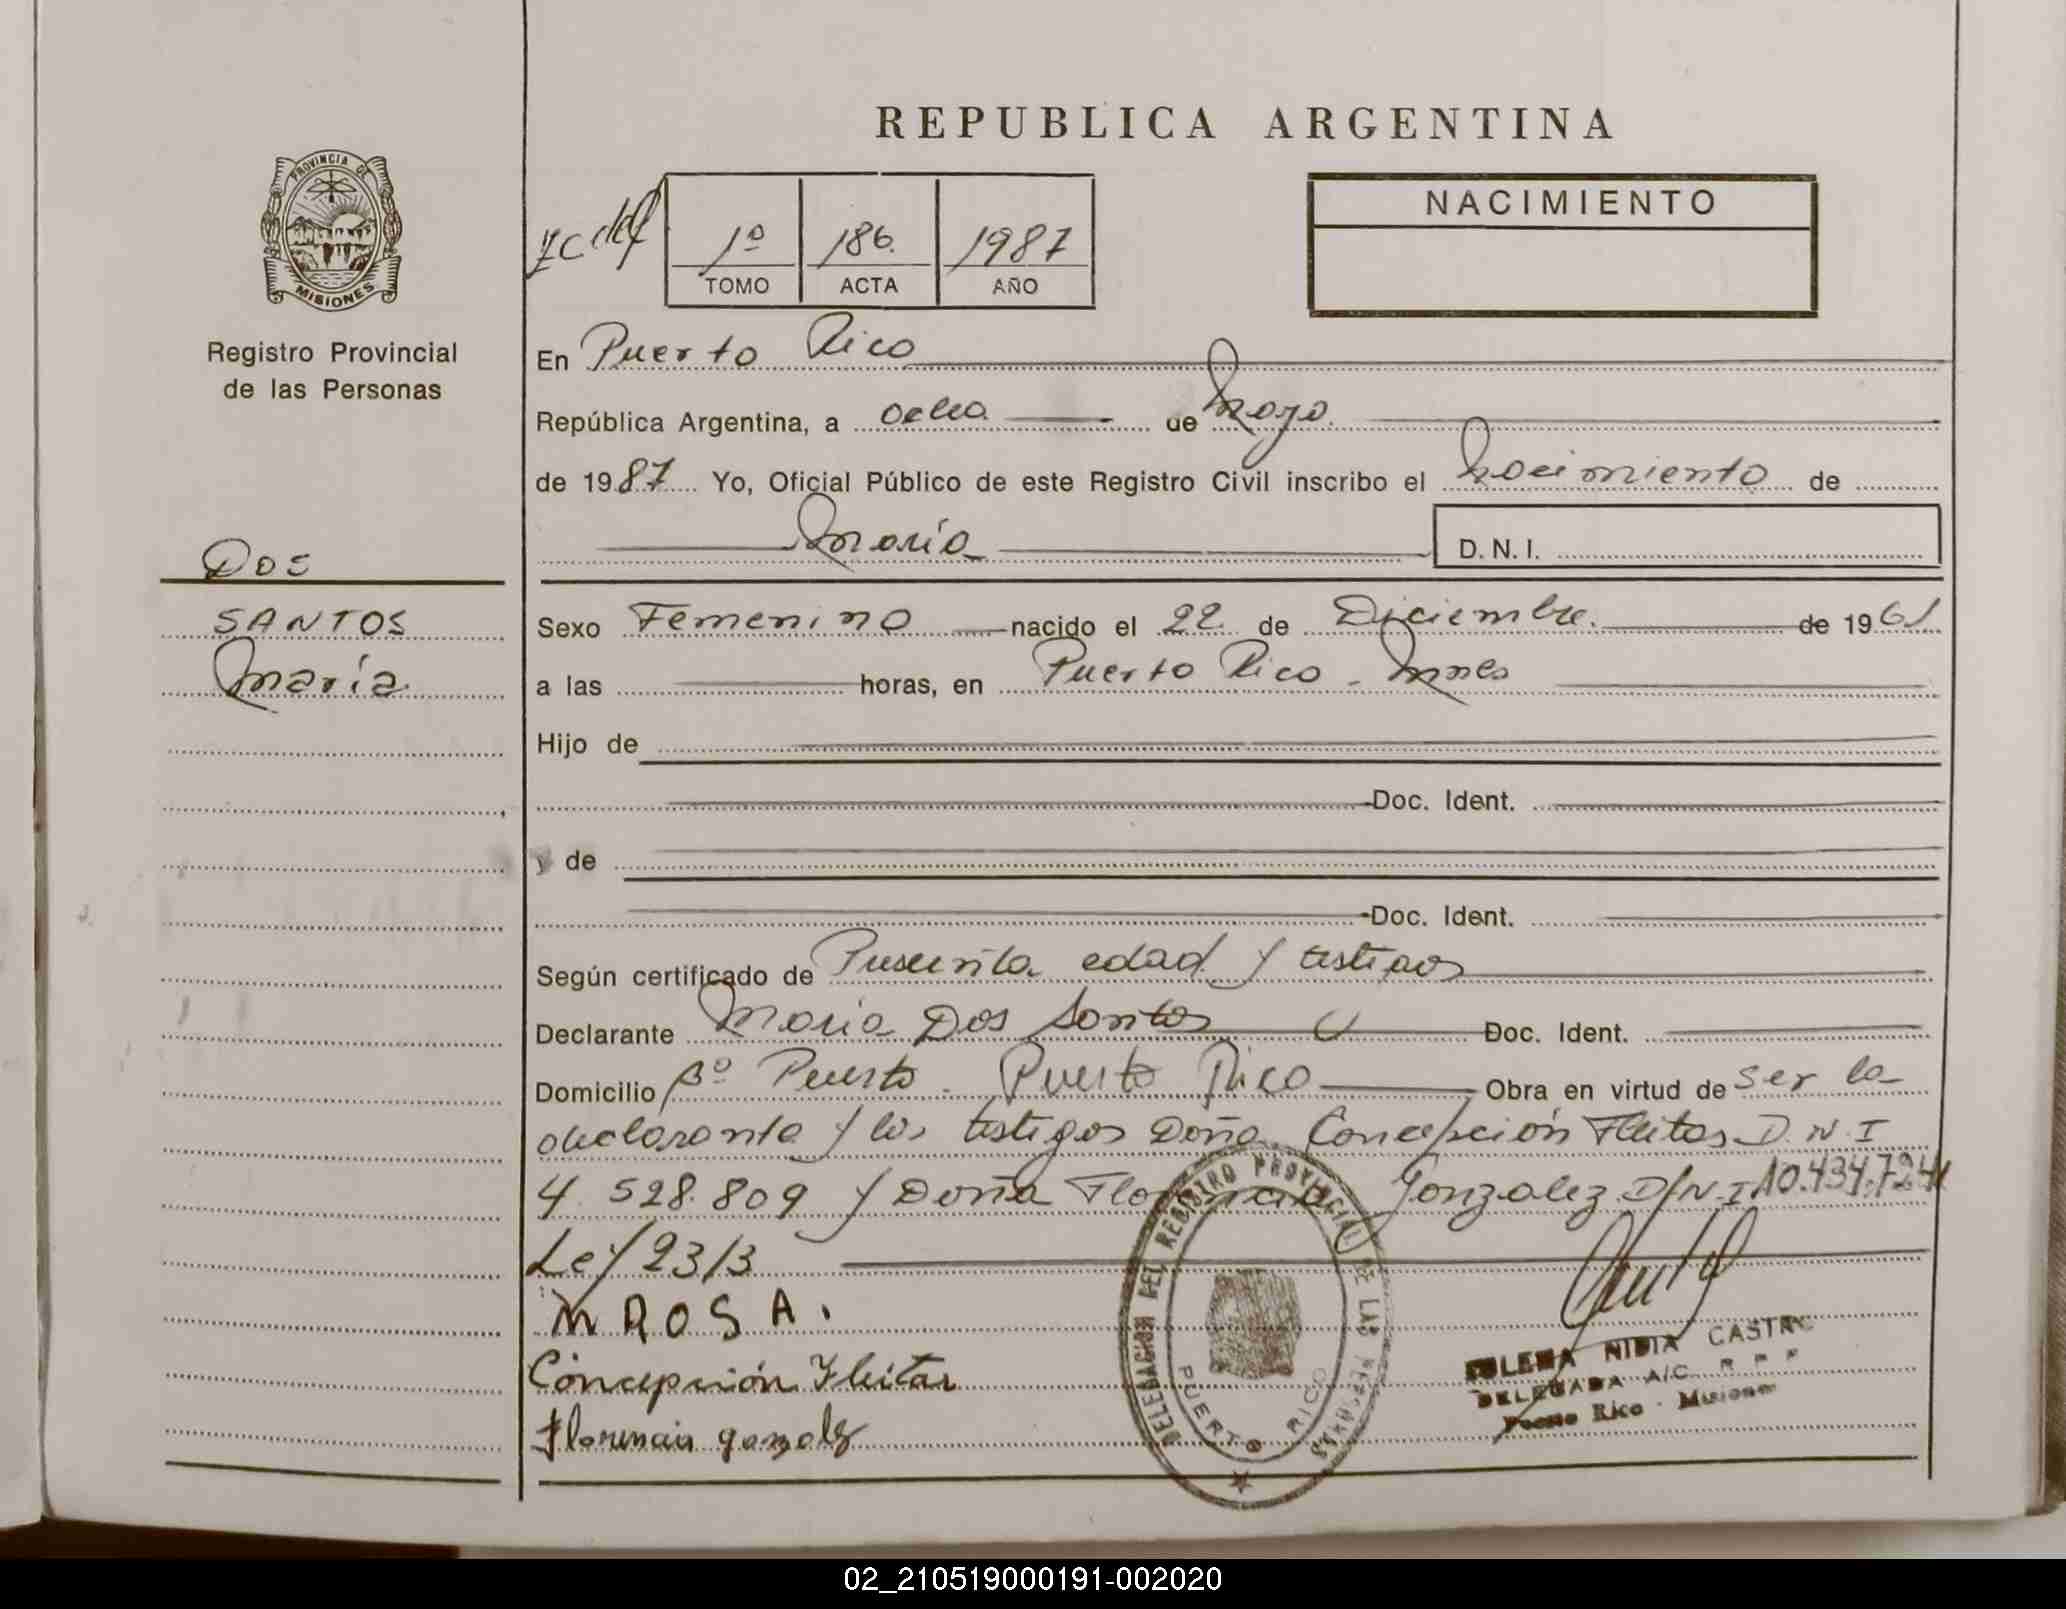 REPUBLICA ARGENTINA
PROVINCIA DE
MISIONES
Registro Provincial
de las Personas
1º 186. 1987
TOMO ACTA AÑO
NACIMIENTO
En Puerto Rico
República Argentina, a ocho de Mayo.
de 1987 Yo, Oficial Público de este Registro Civil inscribo el Nacimiento de
María D.N.I.
DOS
SANTOS
María
Sexo Femenino nacido el 22 de Diciembre. de 1961
a las horas, en Puerto Rico - Mnes
Hijo de
Doc. Ident.
y de
Doc. Ident.
Según certificado de Presunta edad y testigos
Declarante María Dos Santos Doc. Ident.
Domicilio Bº Puerto - Puerto Rico Obra en virtud de ser la
declarante y los testigos Doña Concepción Fleitas D.N.I
4.528.809 y Doña Gonzalez D.N.I 10.434.724
Ley 23/3
M R O S A.
Concepción Fleitas
DELEGACION DEL REGISTRO PROVINCIAL DE LAS PERSONAS
PUERTO RICO
NIDIA CASTRO
DELEGADA A/C R P P
Puerto Rico - Misiones
02_210519000191-002020